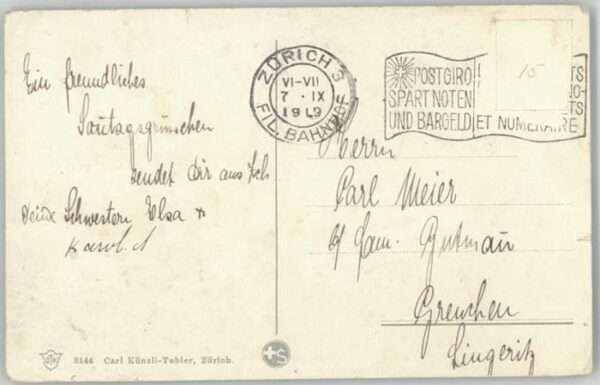 Ein freundliches
Sonntagsgrüsschen
sendet dir aus Zch
deine Schwestern Elsa +
ZÜRICH 3
VI-VII
7. IX
1919
FIL. BAHNHOF
POSTGIRO
SPART NOTEN
UND BARGELD
ET NUMÉRAIRE
15
Herrn
Carl Meier
Fam. Gutmann
Grenchen
Lingeritz
8144 Carl Künzli-Tobler, Zürich.